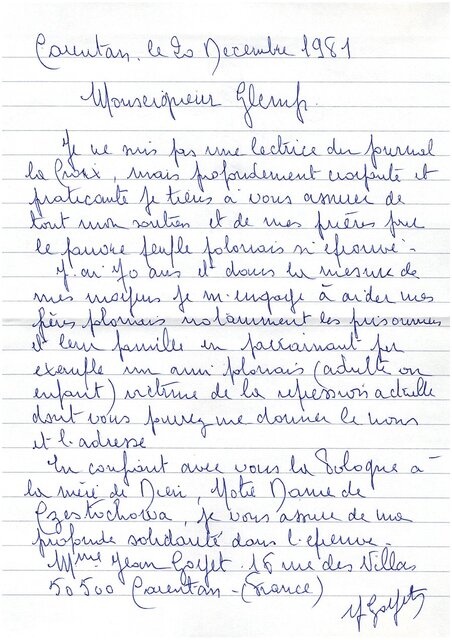 Carentan, le 20 Decembre 1981
Monseigneur Glemp.
Je ne suis pas une lectrice du journal
la Croix, mais profondement croyante et
praticante je tiens à vous assurer de
tout mon soutien et de mes prières pour
le pauvre peuple polonais si éprouvé.
J'ai 70 ans et dans la mesure de
mes moyens je m'engage à aider mes
frères polonais notamment les prisonniers
et leur familles en parrainant par
exemple un ami polonais (adulte ou
enfant) victime de la repression actuelle
dont vous pourrez me donner le nom
et l'adresse
En confiant avec vous la Pologne à
la mère de Dieu, Notre Dame de
Czestochowa, je vous assure de ma
profonde solidarité dans l'epreuve.
Mme Jean Goyet. 16 rue des Villas
50500 Carentan - (France)